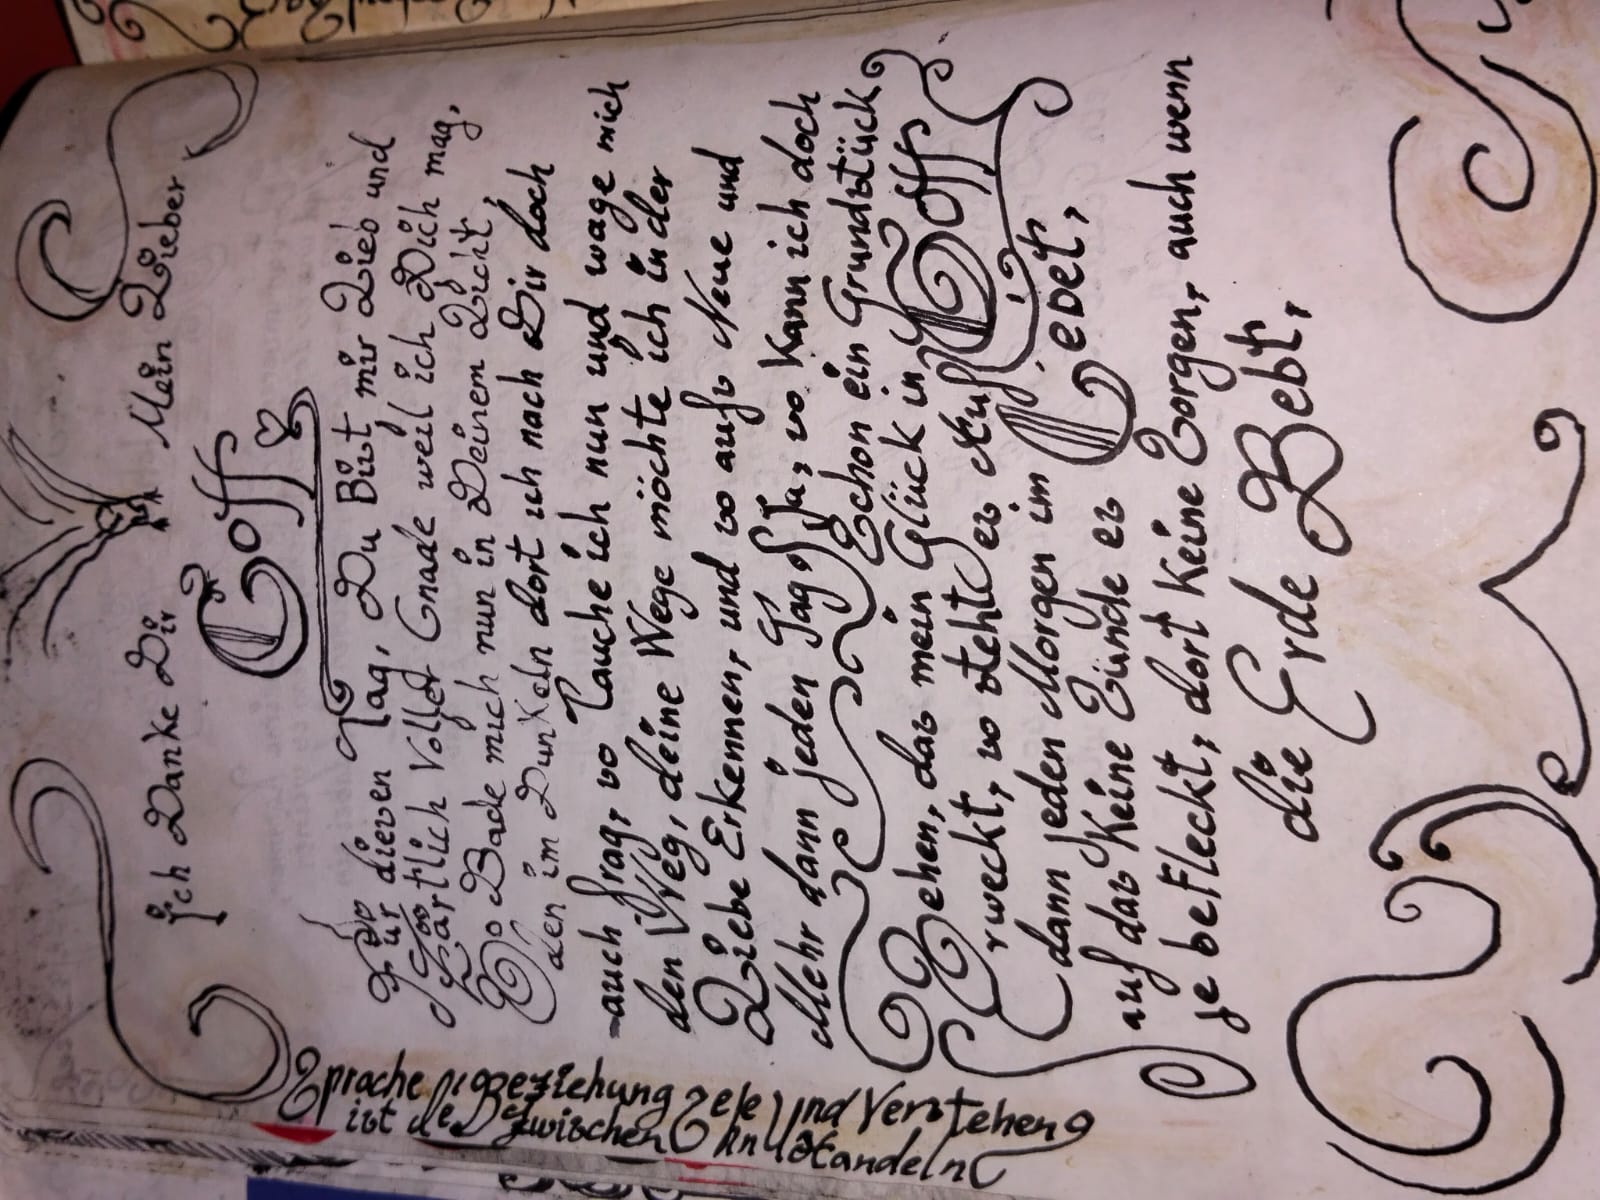 Ich Danke Dir Mein Lieber
Gott
Für diesen Tag, Du Bist mir Lieb und
Zärtlich Voller Gnade weil ich Dich mag,
So Bade mich nun in Deinem Licht,
den im Dunkeln dort ich nach Dir doch
auch frag, so Tauche ich nun und wage mich
den Weg, deine Wege möchte ich in der
Liebe Erkennen, und so aufs Neue und
Mehr dann jeden Tag Ja, so Kann ich doch
Schon ein Grundstück
Sehen, das mein Glück in Gott
rweckt, so stehts es Auf
dann jeden Morgen im Gebet,
auf das Keine Sünde es
je befleckt, dort Keine Sorgen, auch wenn
die Erde Bebt,
Sprache
ist die zwischen Sele Und Verstehen